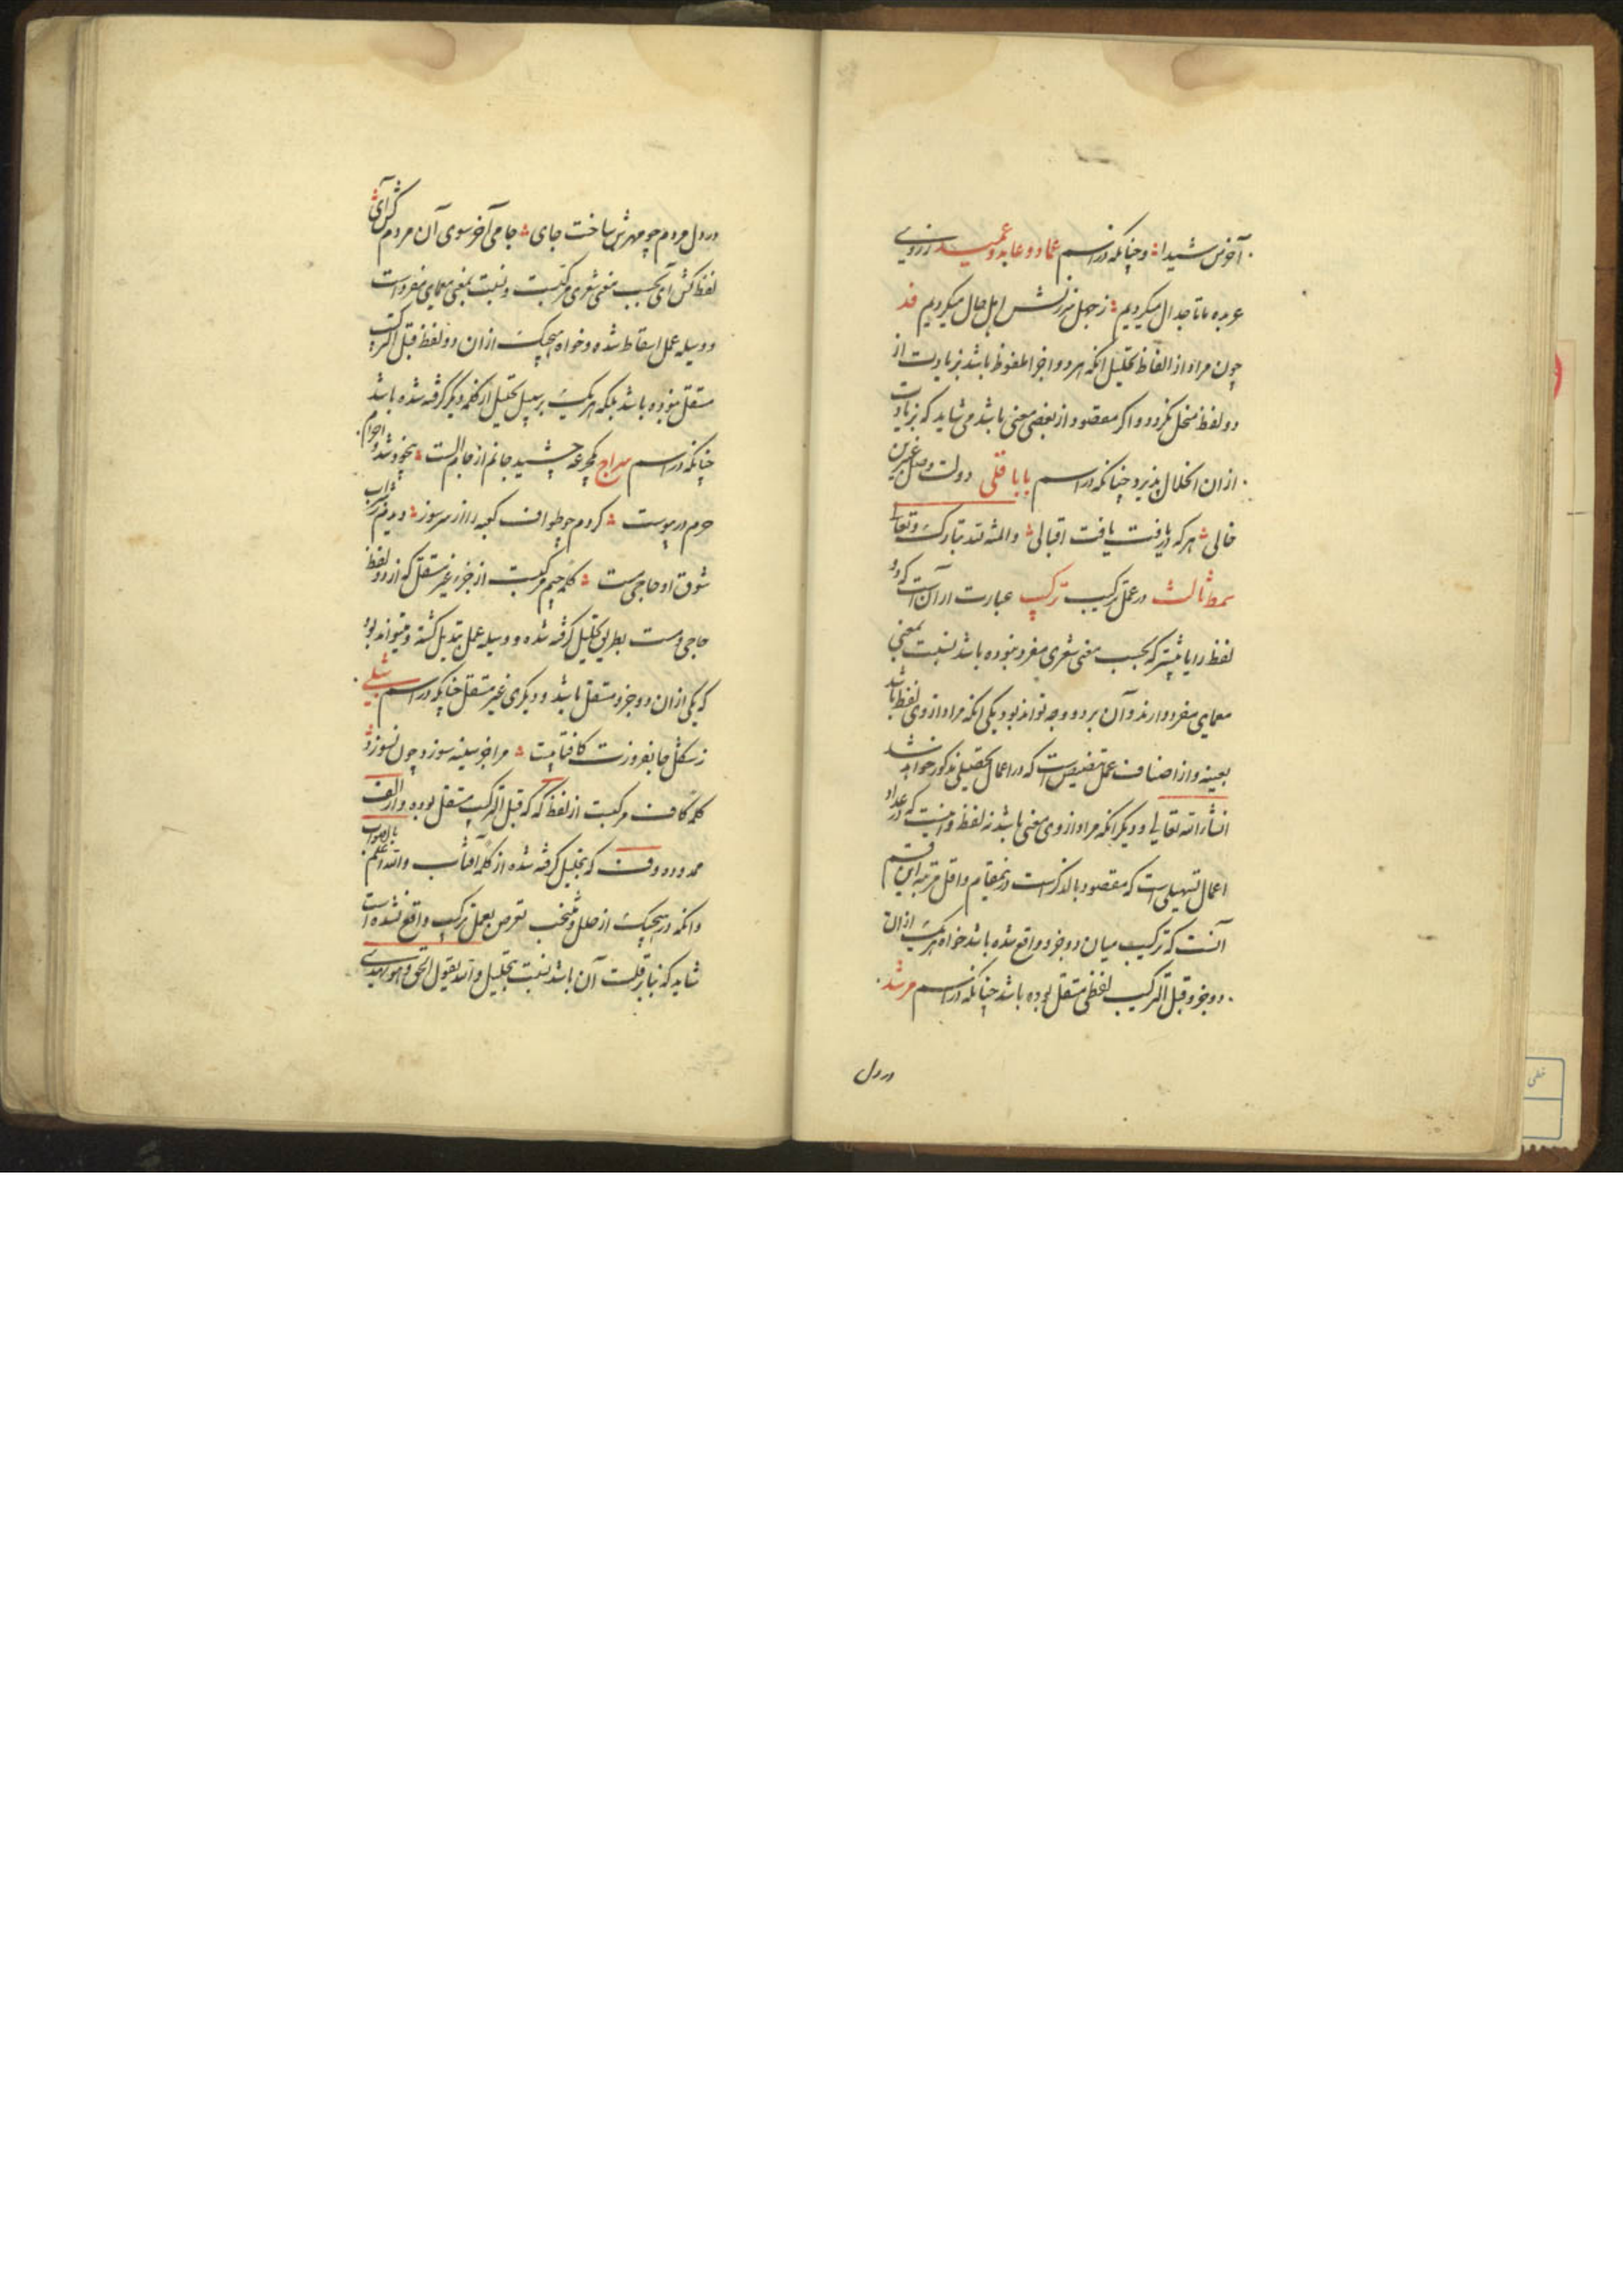 آخوش شیدا و چنانکه در اسم عماد و عابد و عمید ز روی
عربده ما تا جدال میکردیم ز جهل سرزنش اهل حال میکردیم
چون مراد از الفاظ تحلیل آنکه هر دو اجزا ملفوظ باشد بزیادت از
دو لفظ منحل نگردد و اگر مقصود از بعضی معنی باشد می شاید که بزیادت
از ان انحلال پذیرد چنانکه در اسم بابا قلی دولت وصل
خالی هر که دریافت یافت اقبالی والمنة لله تبارک وتعالی
سمط ثالث در عمل ترکیب ترکیب عبارت از آن است که دو
لفظ را یا بیشتر که بحسب معنی شعری مفرد نبوده باشد نسبت بمعنی
معمایی مفرد دارند و آن بر دو وجه تواند بود یکی آنکه مراد از وی لفظ باشد
بعینه و از اصناف عمل تنصیص است که در اعمال تحصیلی مذکور خواهد شد
انشاء الله تعالی و دیگر آنکه مراد از وی معنی باشد نه لفظ و اینست که در عداد
اعمال تسهیلی است که مقصود بالذکر است درینمقام و اقل مرتبه این قسم
آنست که ترکیب میان دو جزو واقع شده باشد خواه هر یک از ان
دو جزو قبل الترکیب لفظی مستقل بوده باشد چنانکه در اسم مرشد
در دل
در دل مردم چو مهرش ساخت جای جامی آخر سوی آن مردم کش آی
لفظ کش آی بحسب معنی شعری مرکبست و نسبت بمعنی معمایی مفرد است
و وسیله عمل اسقاط شده و خواه هیچیک از ان دو لفظ قبل الترکیب
مستقل نبوده باشد بلکه هر یک بر سبیل تحلیل از کلمه دیگر گرفته شده باشد
چنانکه در اسم سراج جرعه چشید جانم از جام الست بیخود شد و احرام
حرم در پیوست کردم چو طواف کعبه را از سر سوز دیدم شراب
شوق او حاجی مست کلمه جیم مرکبست از جزء غیر مستقل که از دو لفظ
حاجی مست بطریق تحلیل گرفته شده و وسیله عمل تبدیل گشته و میتواند بود
که یکی از ان دو جزو مستقل باشد و دیگری غیر مستقل چنانکه در اسم شبلی
ز شکل جانفروزت کافتابیست مرا جز سینه سوزد چون نسوزد
کلمه کاف مرکبست از لفظ که که قبل الترکیب مستقل بوده و از الف
ممدوده و ف که بتحلیل گرفته شده از کلمه آفتاب والله اعلم بالصواب
و آنکه در هیچیک از حلل و منتخب تعرض بعمل ترکیب واقع نشده است
شاید که بنابر قلت آن باشد نسبت بتحلیل والله یقول الحق وهو یهدی